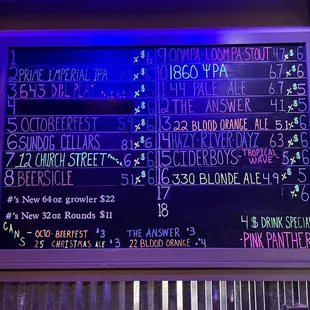 1 % $6
2 PRIME IMPERIAL IPA 8.5% $6
3 643 DBL PLAY
4 % $
5 OCTOBEERFEST 5.9% $6
6 SUNDOG CELLARS 8.1% $6
7 12 CHURCH STREET % $6
8 BEERSICLE 5.1% $6
#'s New 64 oz growler $22
#'s New 32 oz Rounds $11
9 OOMPA-LOOMPA-STOUT 4.7% $6
10 1860 YPA 6.7% $6
11 44 PALE ALE 6.7% $5
12 THE ANSWER 4.1% $
13 22 BLOOD ORANGE ALE 5.1% $
14 HAZY RIVER DAYZ 6.3% $
15 CIDERBOYS - TROPICAL WAVE - 5% $6
16 330 BLONDE ALE 4.9% $5
17
18
4 $ DRINK SPECIAL
PINK PANTHER
CANS - OCTO-BEERFEST $3 THE ANSWER $3
25 CHRISTMAS ALE $3 22 BLOOD ORANGE $4